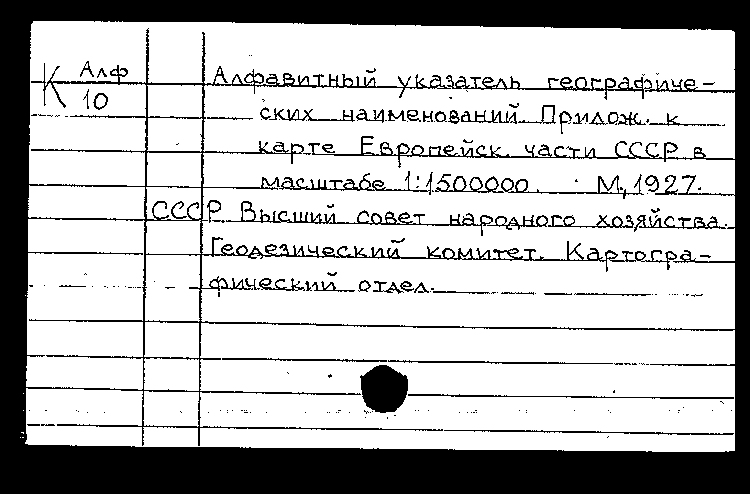 К Алф
10
Алфавитный указатель географиче-
ских наименований. Прилож. к
карте Европейск. части СССР в
масштабе 1:1500000. М, 1927.
СССР Высший совет народного хозяйства.
Геодезический комитет. Картогра-
фический отдел.